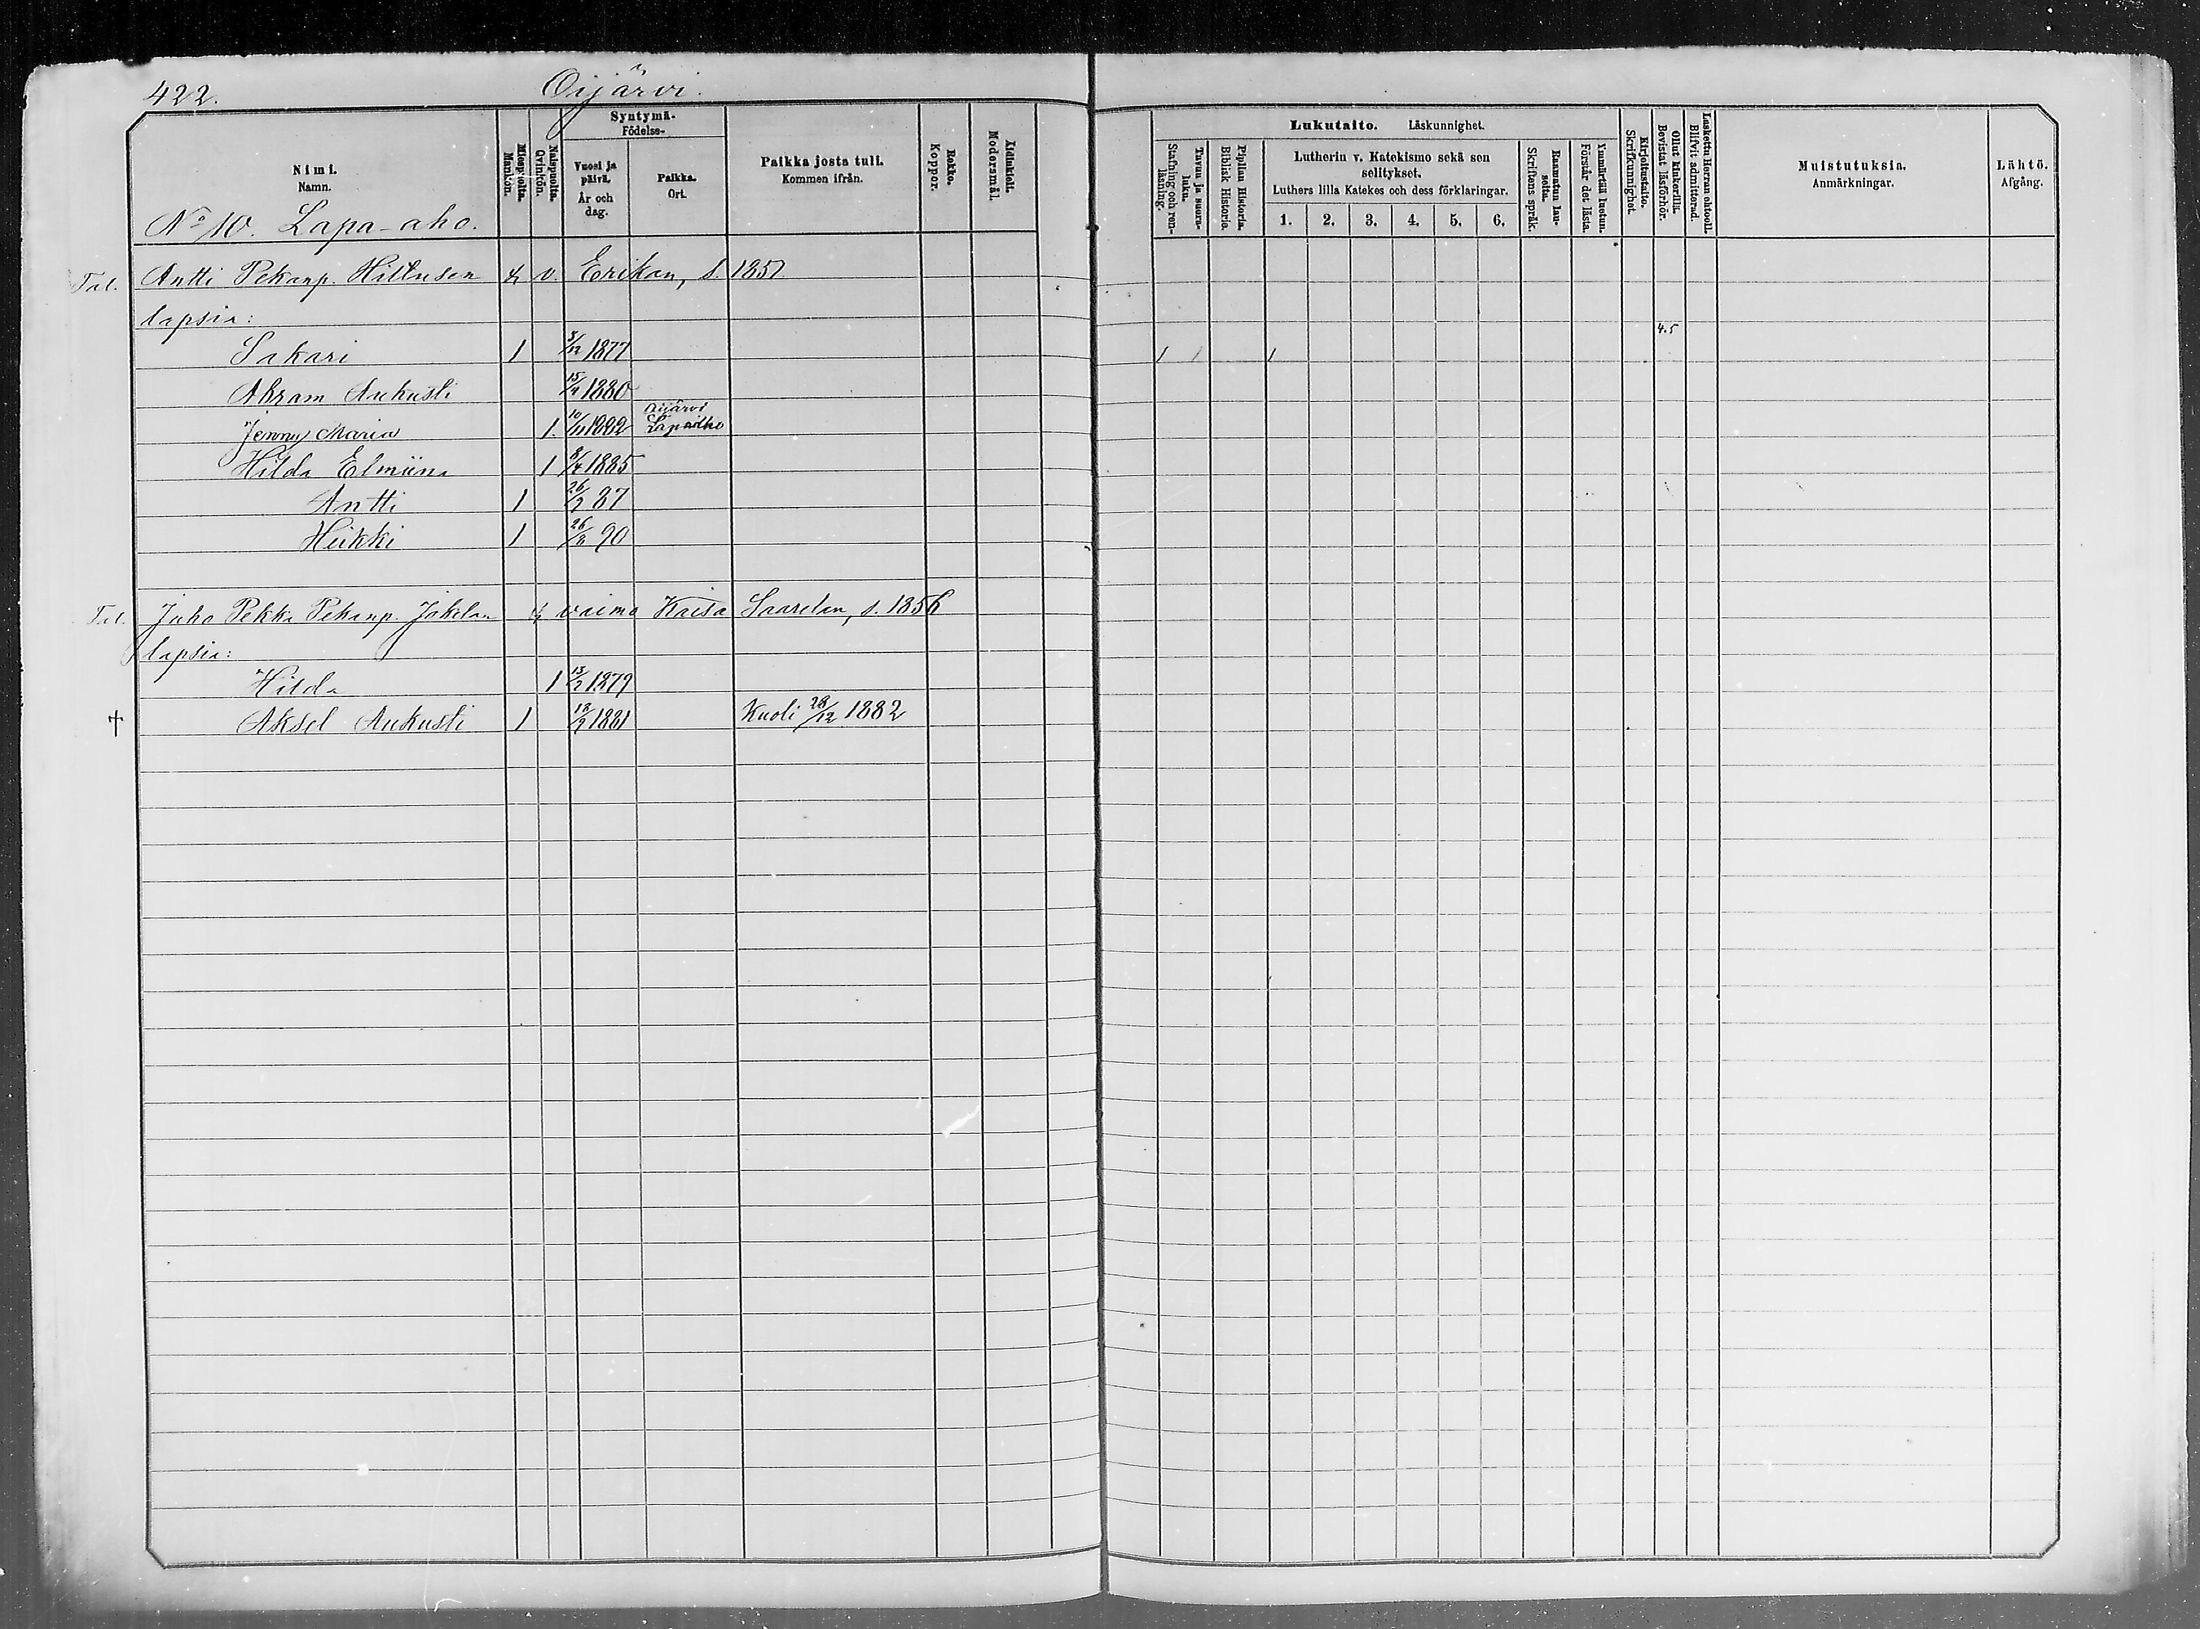 422.
Oijärvi.
Nimi.
Namn.
Miespuolia.
Mankön.
Naispuolia.
Qvinkön.
Syntymä-
Födelse-
Vuosi ja
päivä.
År och
dag.
Paikka.
Ort.
Paikka josta tuli.
Kommen ifrån.
Rokko.
Koppor.
Äidinkieli.
Modersmål.
Lukutaito. Läskunnighet.
Tavuu ja suora-
luku.
Stafning och ren-
läsning.
Piplian Historia.
Biblisk Historie.
Lutherin v. Katekismo sekä sen
selitykset.
Luthers lilla Katekes och dess förklaringar.
1. 2. 3. 4. 5. 6.
Raamatun lau-
seita.
Skriftens språk.
Ymmärtää luetun.
Förstår det lästa.
Kirjoitustaito.
Skrifkunnighet.
Ollut kinkerillä.
Bevistat läsförhör.
Laskettu Herran ehtooll.
Blifvit admitterad.
Muistutuksia.
Anmärkningar.
Lähtö.
Afgång.
No 10. Lapa-aho.
Tal. Antti Pekanp. Hiltusen & v. Erikan, s. 1857
lapsia:
4.5
Sakari 1 3/12 1877 1 1 1
Abram Aukusti 15/4 1880
Jenny Maria 1. 10/11 1882 Oijärvi Lapaaho
Hilda Elmiina 1 8/4 1885
Antti 1 26/2 87
Heikki 1 26/8 90
Tal. Juho Pekka Pekanp. Jakelan & vaimo Kaisa Saarelan, s. 1856
lapsia:
Hilda 1 13/2 1879
† Aksel Aukusti 1 13/7 1881 Kuoli 28/12 1882